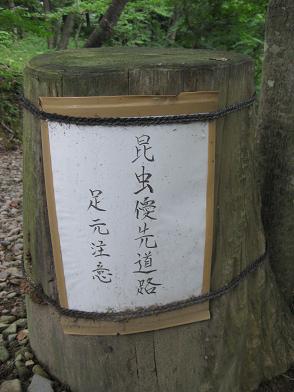 昆虫優先道路
足元注意